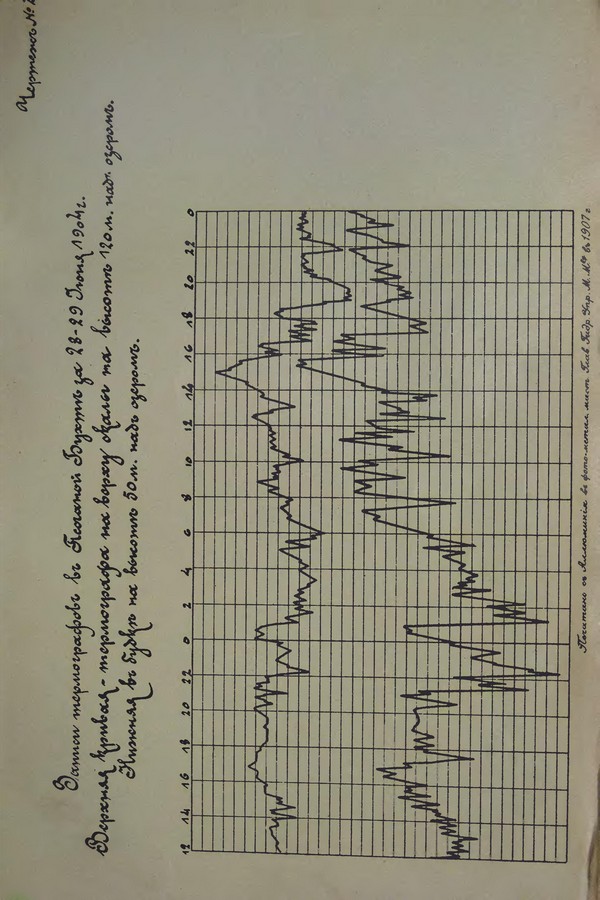 Чертежъ № 2
Записи термографовъ въ Песчаной Бухтѣ за 28-29 Июня 1904 г.
Верхняя кривая - термографа на верху скалы на высотѣ 120 м. надъ озеромъ.
Нижняя въ будкѣ на высотѣ 50 м. надъ озеромъ.
12 14 16 18 20 22 0 2 4 6 8 10 12 14 16 18 20 22 0
Печатано съ Аллюминія въ фото-метал. маст. Глав. Гидр. Упр. М. М-ва въ 1907 г.